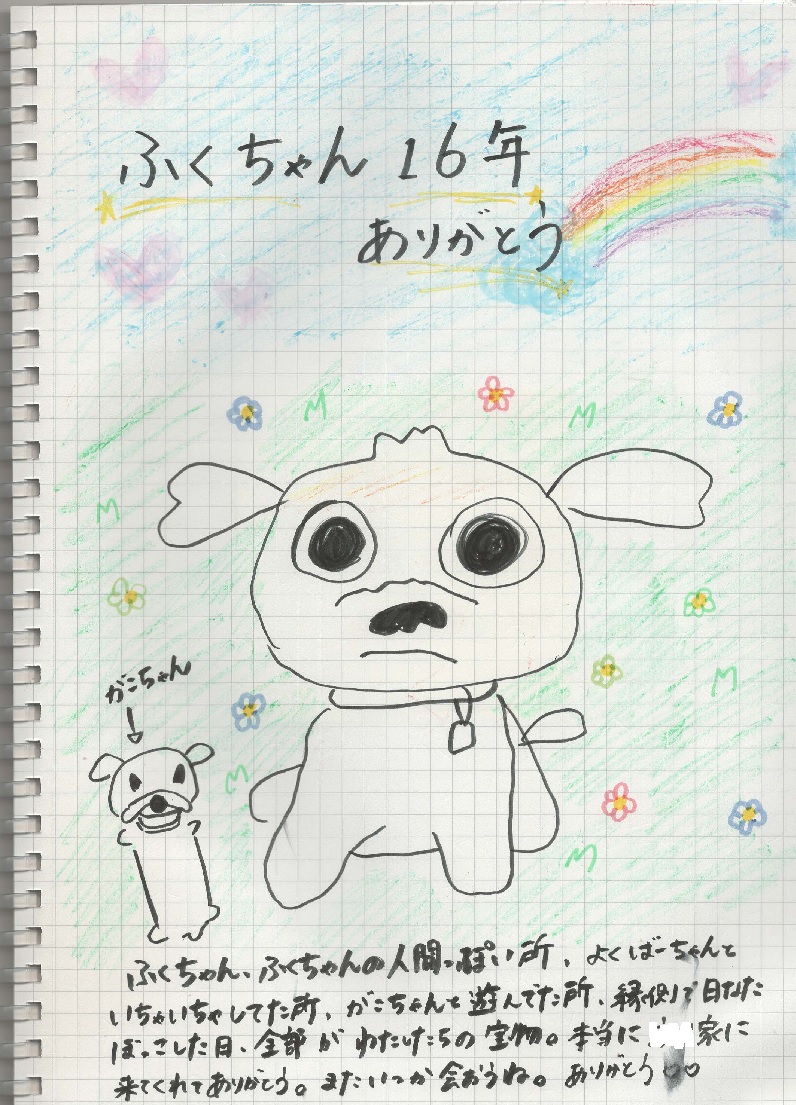 ふくちゃん 16年
ありがとう
がこちゃん
ふくちゃん、ふくちゃんの人間っぽい所、よくばーちゃんと
いちゃいちゃしてた所、がこちゃんと遊んでた所、縁側で日なた
ぼっこした日、全部がわたしたちの宝物。本当に 家に
来てくれてありがとう。またいつか会おうね。ありがとう。。